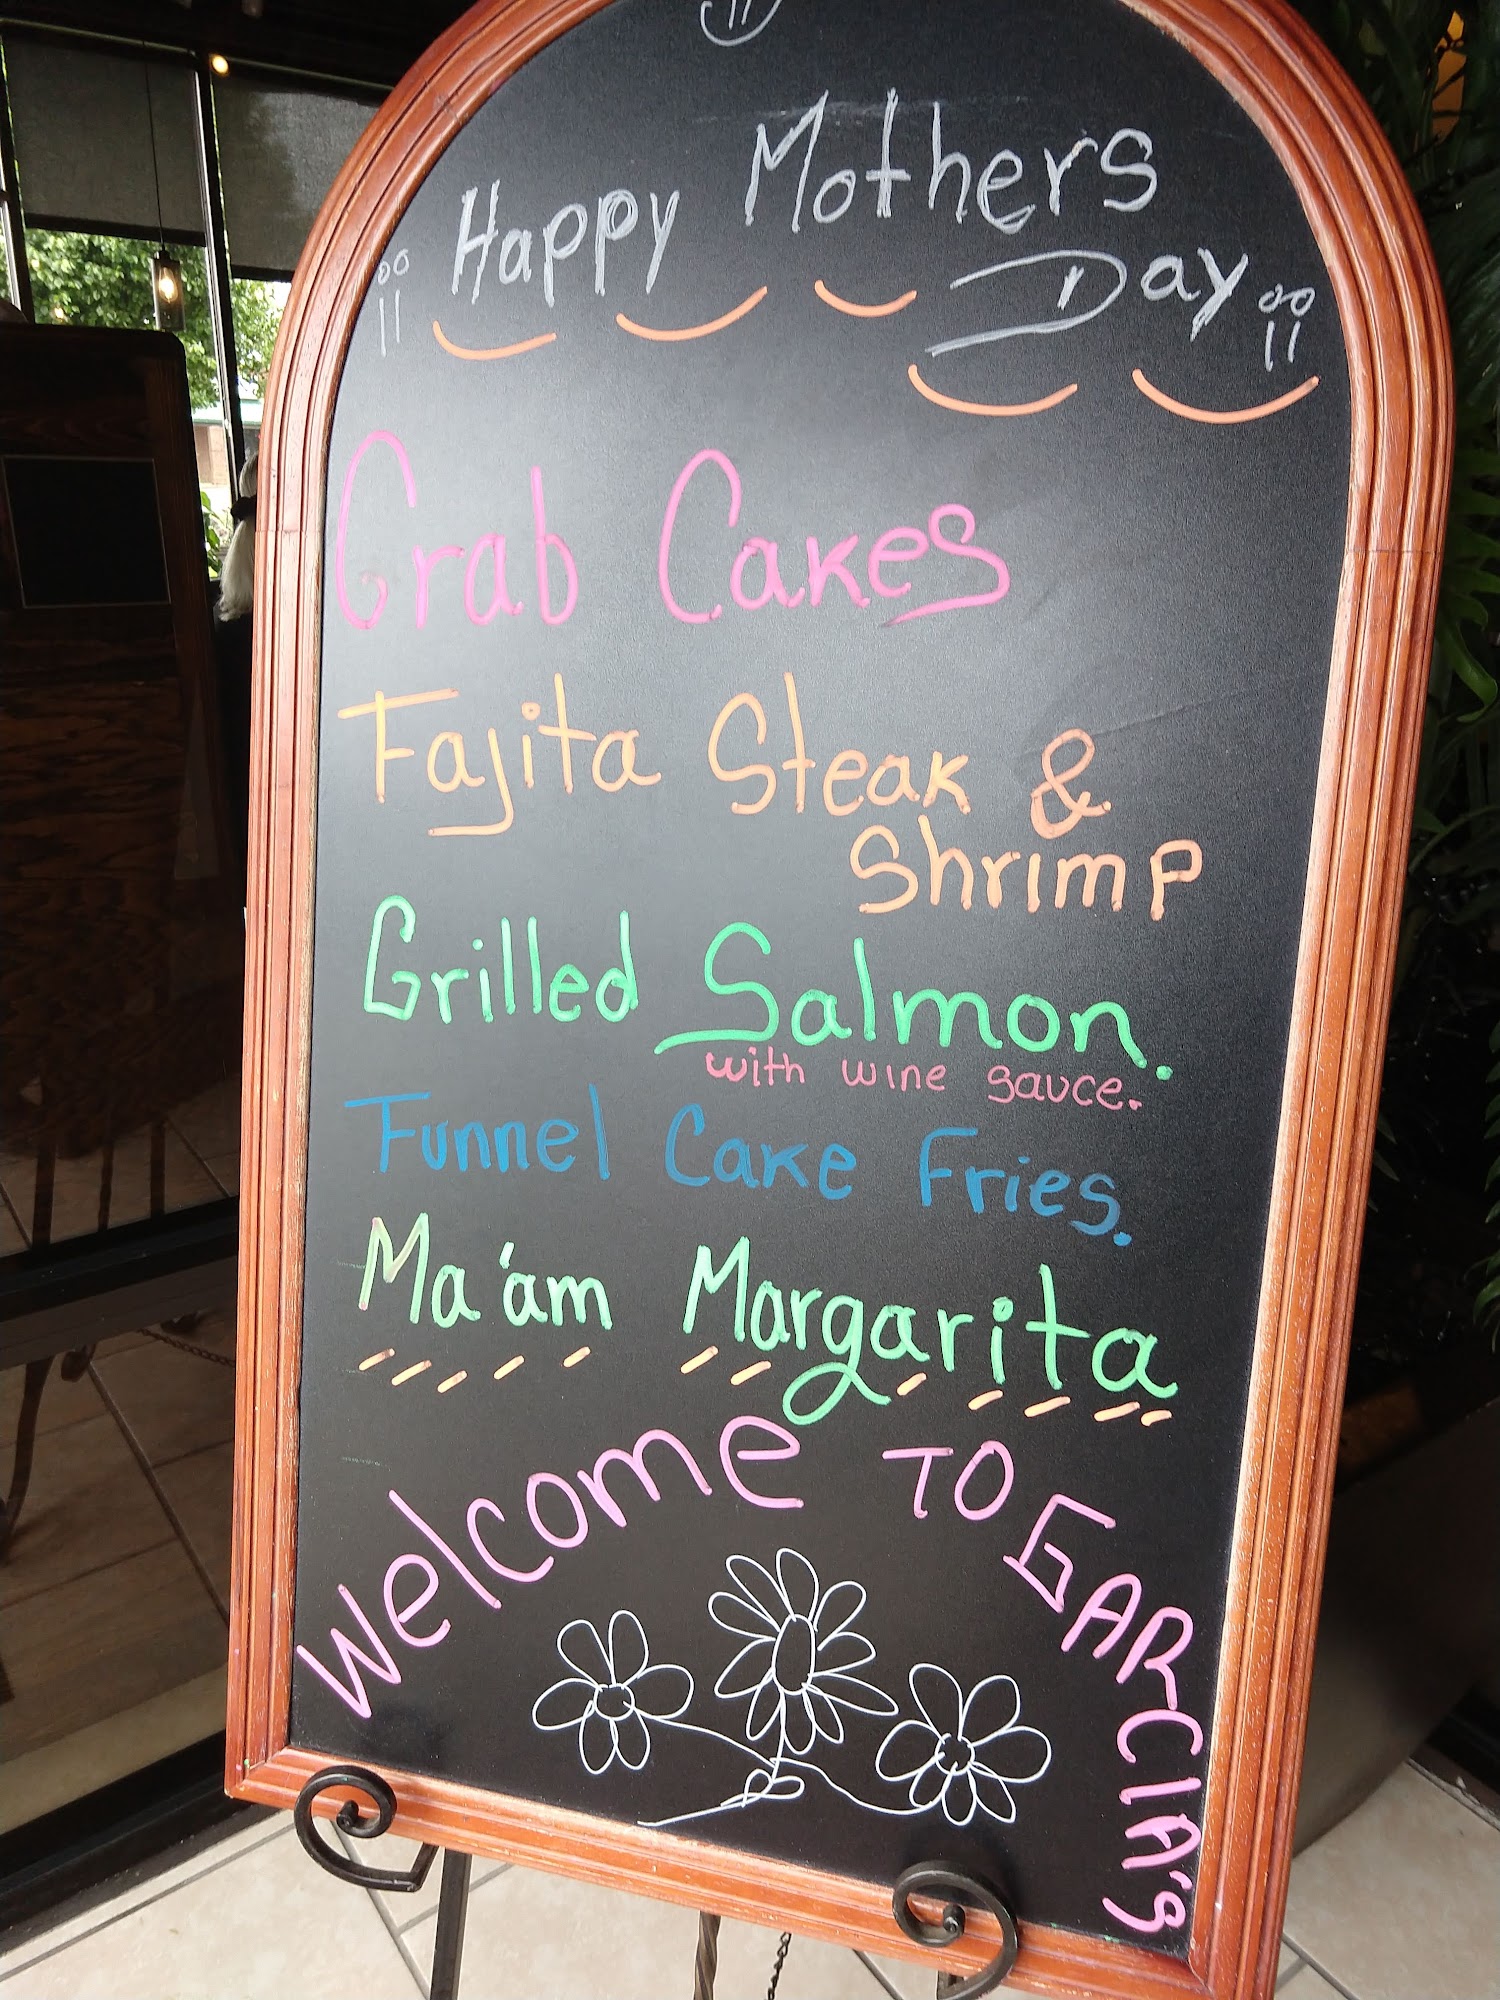 Happy Mothers
Day
Grab Cakes
Fajita Steak &
Shrimp
Grilled Salmon.
with wine sauce.
Funnel Cake Fries.
Ma'am Margarita
Welcome TO GARCIA'S